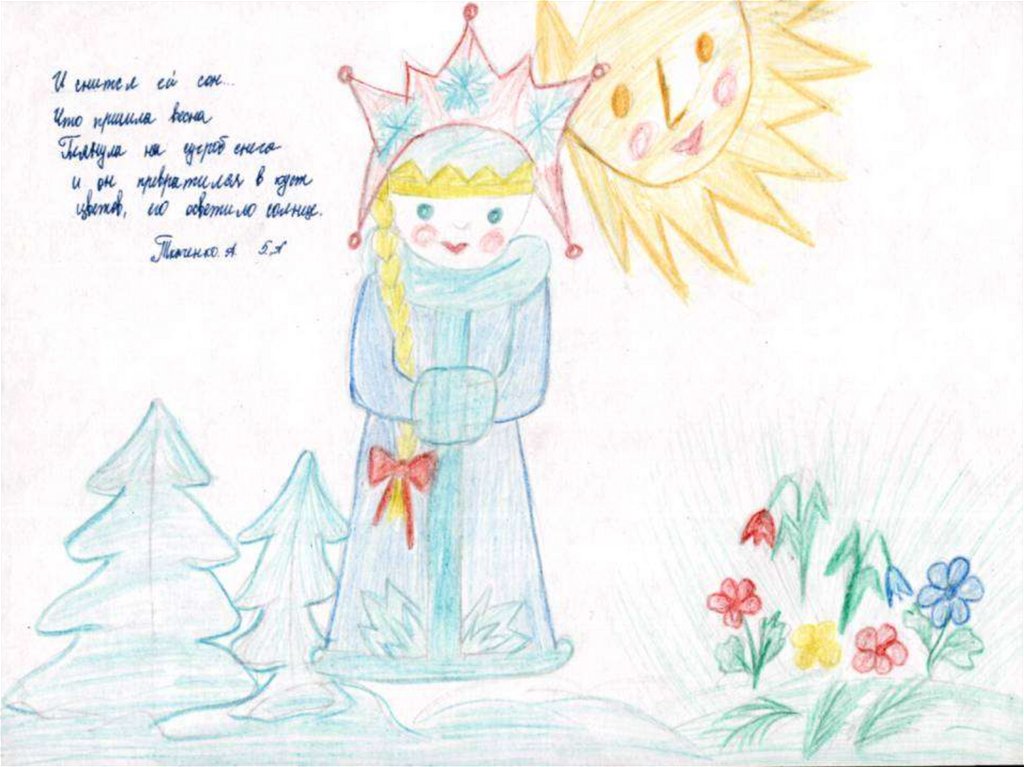 И снится ей сон...
Что пришла весна
Глянула на сугроб снега
и он превратился в куст
цветов, его осветило солнце.
Ткаченко. А. 5„А